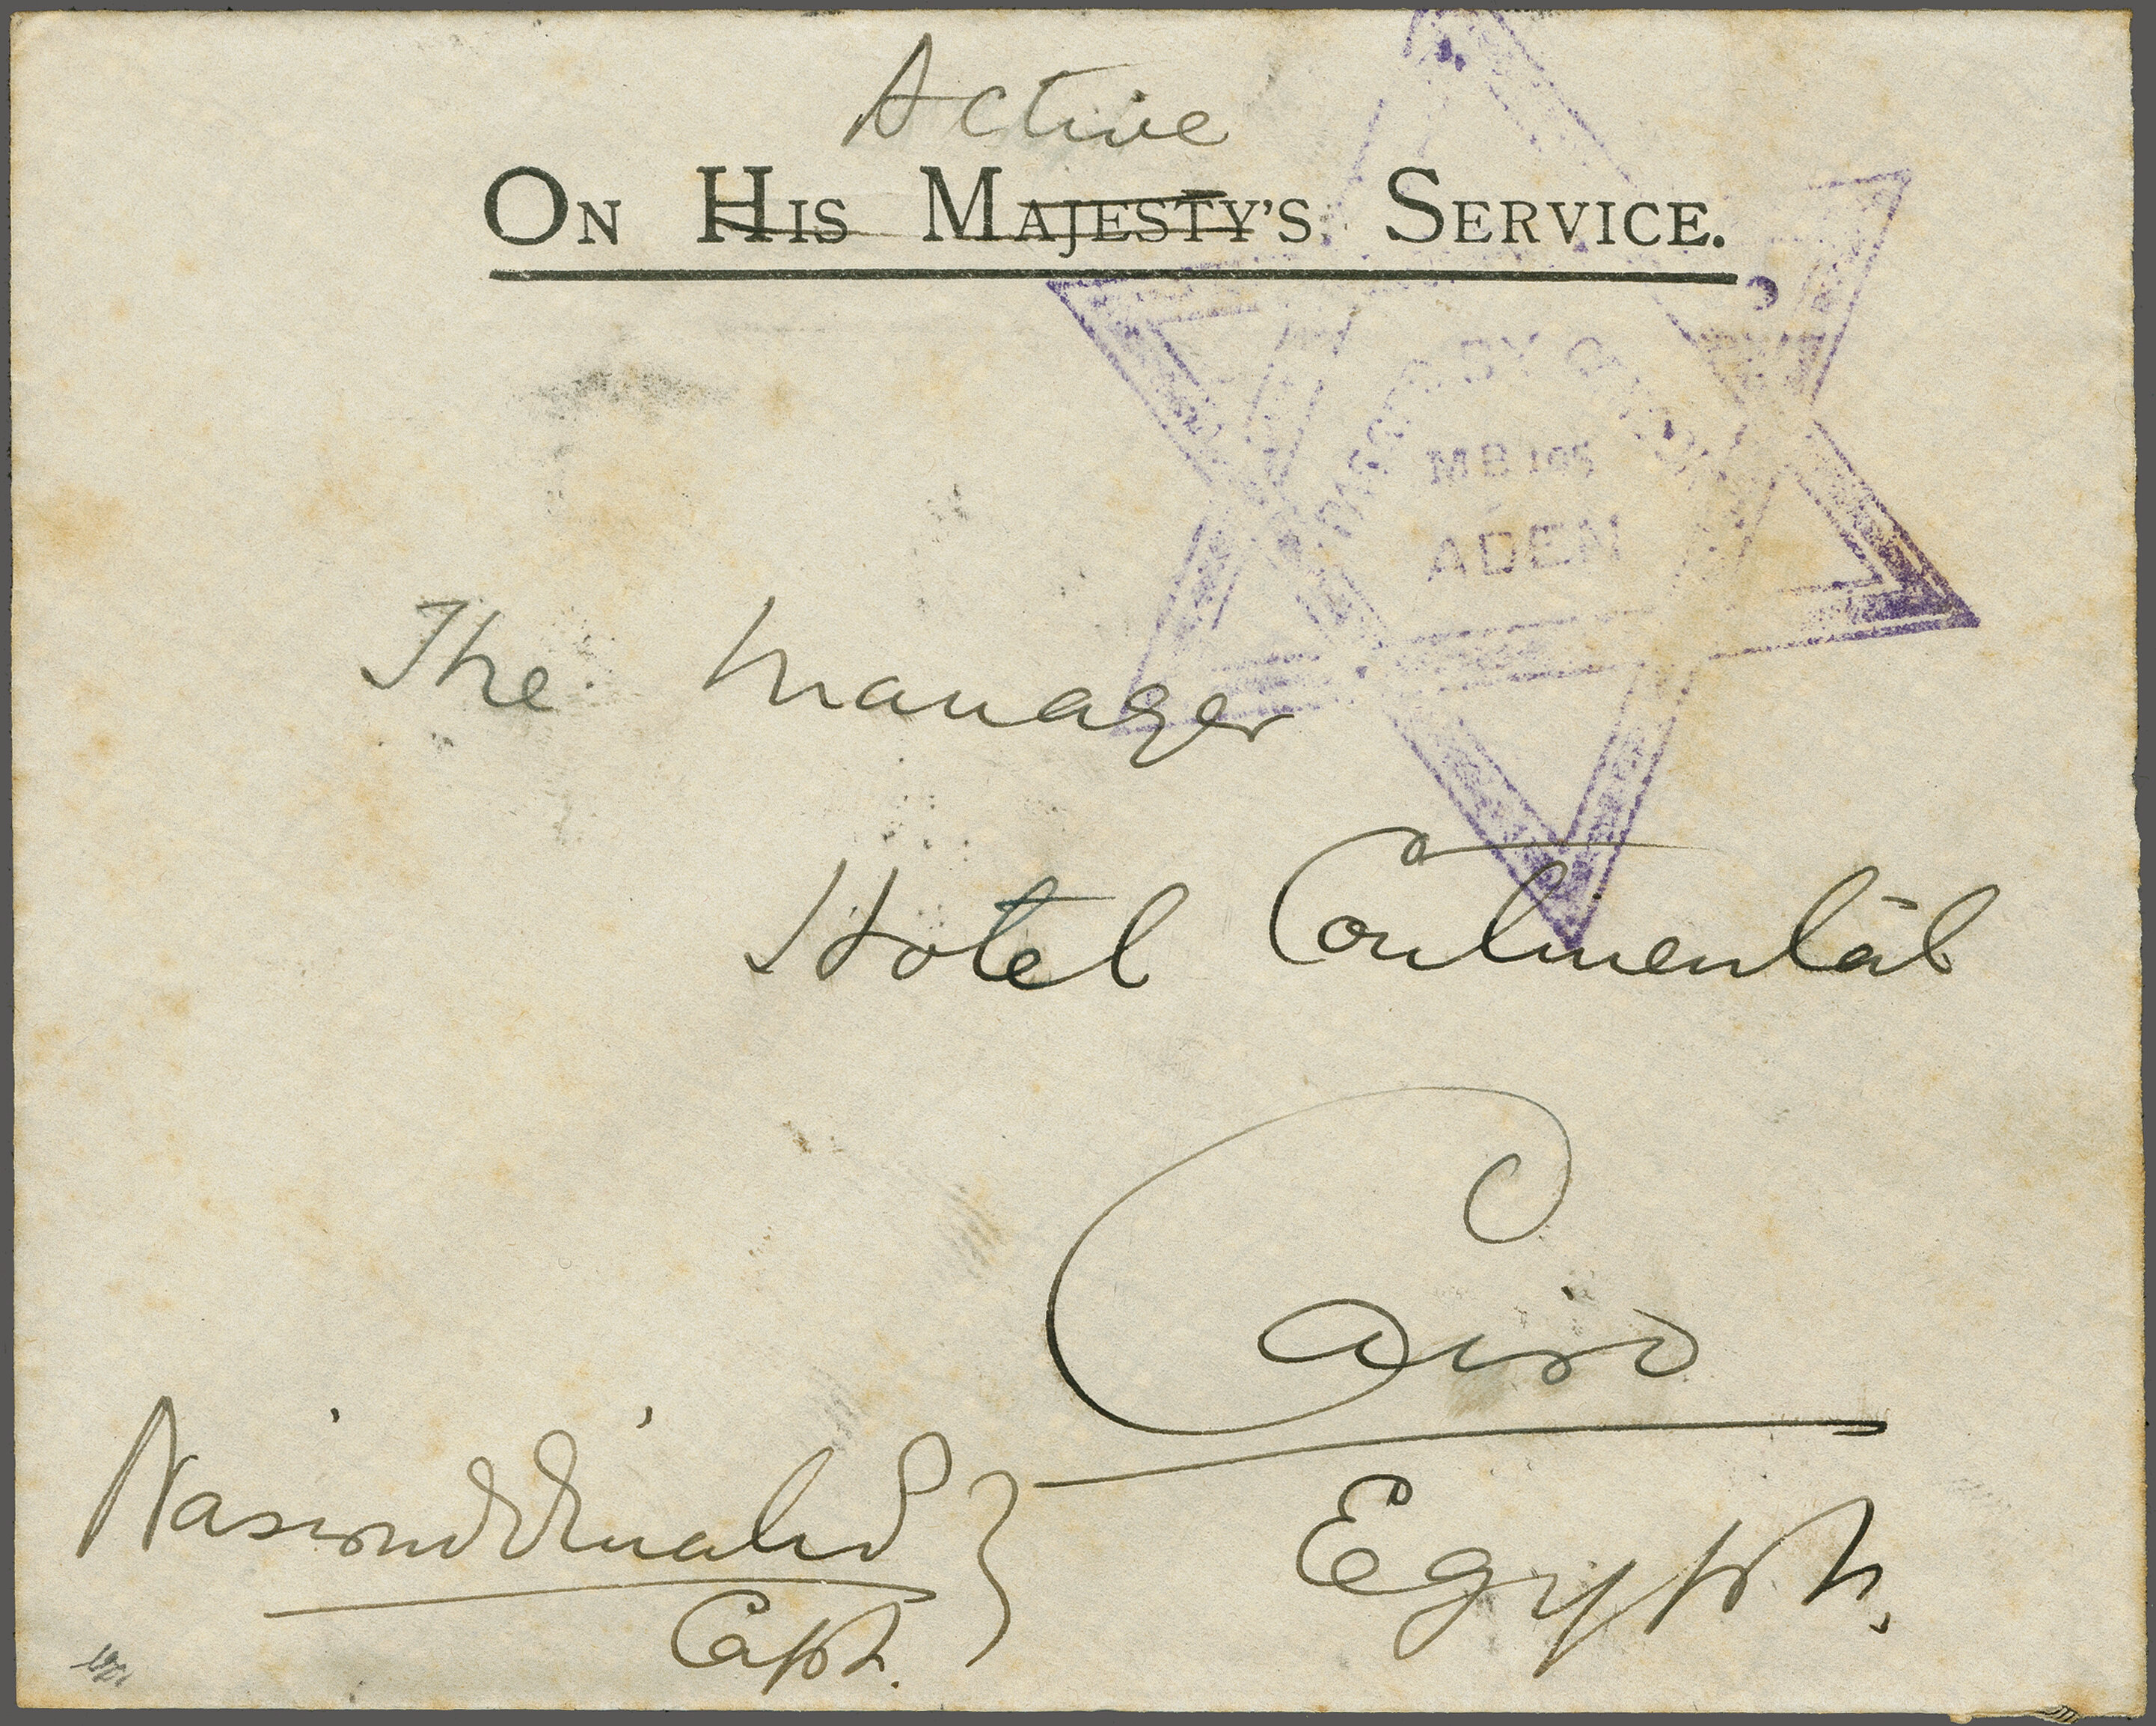 Active
ON HIS MAJESTY'S SERVICE.
PASSED BY CENSOR
MB 105
ADEN
The Manager
Hotel Continental
Cairo
Egypt.
Capt.